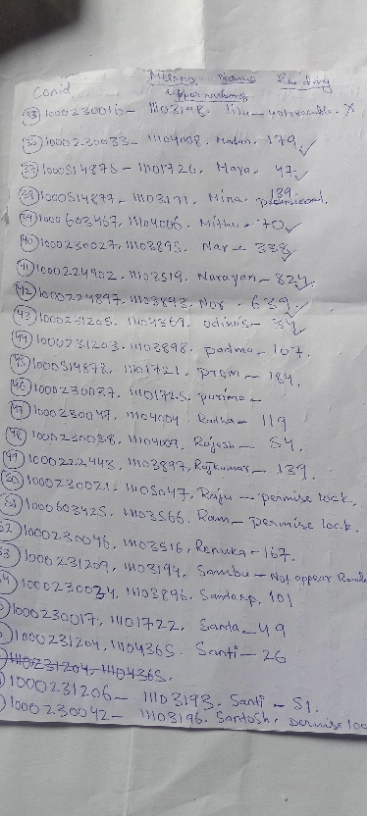 Conid. Meterno. Name Reading
uppernursing
1000230016 - 11103198. - notreadable. X
1000230033 - 11104008. Madan. 179 ✓
1000514875 - 11101726. Maya. 47 ✓
1000514877 - 11103171. Mina. 139 premiseloc.
(39) 1000603467, 11104006. Mithu - 70 ✓
(40) 1000230027, 11103895. Nar - 338 ✓
(41) 1000224902, 11103519. Narayan - 824.
(42) 1000224897, 11103893. Nor. 639 ✓
(43) 1000231205. 11104369. - 34 ✓
(44) 1000231203. 11103898. padma - 107.
(45) 1000514878, 11101721. prem - 184.
(46) 1000230037. 11101725. purima -
(47) 1000230047. 11104004. Radha - 119
(48) 1000230038. 11104009. Rajesh - 54.
(49) 1000222443, 11103897, Rajkumar - 139.
(50) 1000230021, 11105047, Raju - permise lock.
(51) 1000603425. 11103566. Ram - permise lock.
52 1000230046, 11103516, Renuka - 167.
53 1000231209, 11103194. Sambu - Not appear
1000230034, 11103896. Sandesp. 101
1000230017, 11101722. Santa - 49
1000231204, 11104365. Santi - 26
1110231204, 11104365.
1000231206 - 11103193. Santi - 51.
1000230042 - 11103196. Santosh. permise loc